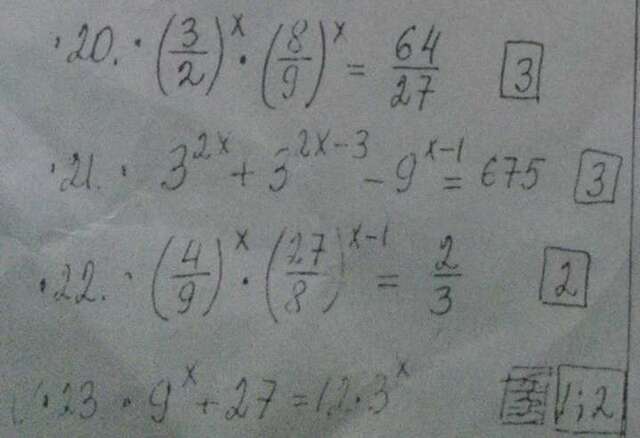 ·20. · (3/2)^x · (8/9)^x = 64/27 [3]
·21. · 3^{2x} + 3^{2x-3} - 9^{x-1} = 675 [3]
·22. · (4/9)^x · (27/8)^{x-1} = 2/3 [2]
·23 · 9^x + 27 = 12 · 3^x [1;2]